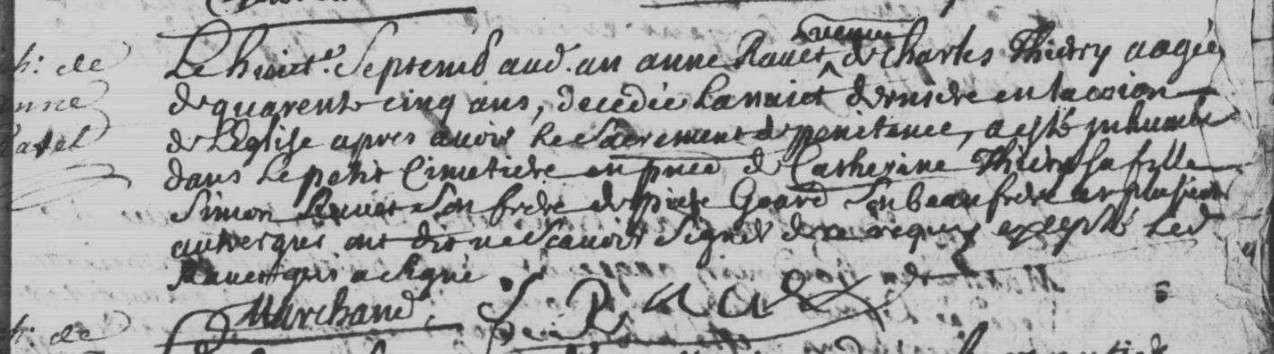 h: de
anne
Ravel
Le huict.e Septemb aud. an anne Ravet veuve de Charles Thiery aagée
de quarente cinq ans, decedée la nuict derniere en la coïon
de L'Eglise apres avoir Receu le Sacrement de penitence, a esté inhumée
dans Le petit Cimetiere en pnce de Catherine Thiery sa fille
Simon Ravet son frere de pierre Geard son beau frere et plusieurs
autres qui ont dit ne scavoir signer de ce requis excepté Led
Ravet qui a signé
Marchand
S R
h: de